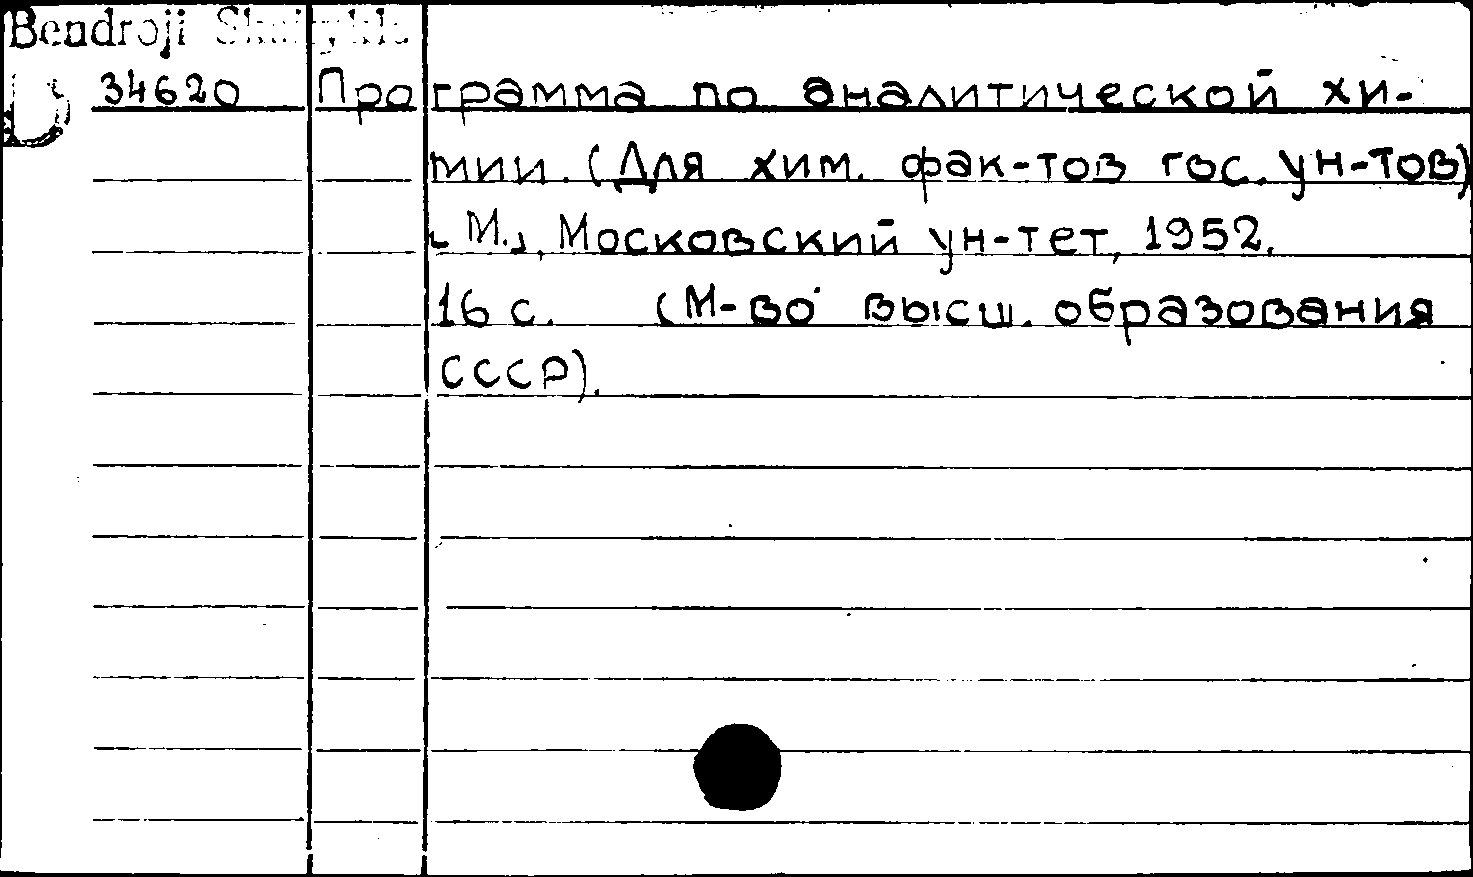 Bendroji
34620 Программа по аналитической хи-
мии. (Для хим. фак-тов гос. ун-тов)
[М.], Московский ун-тет, 1952.
16 с. (М-во высш. образования
СССР).